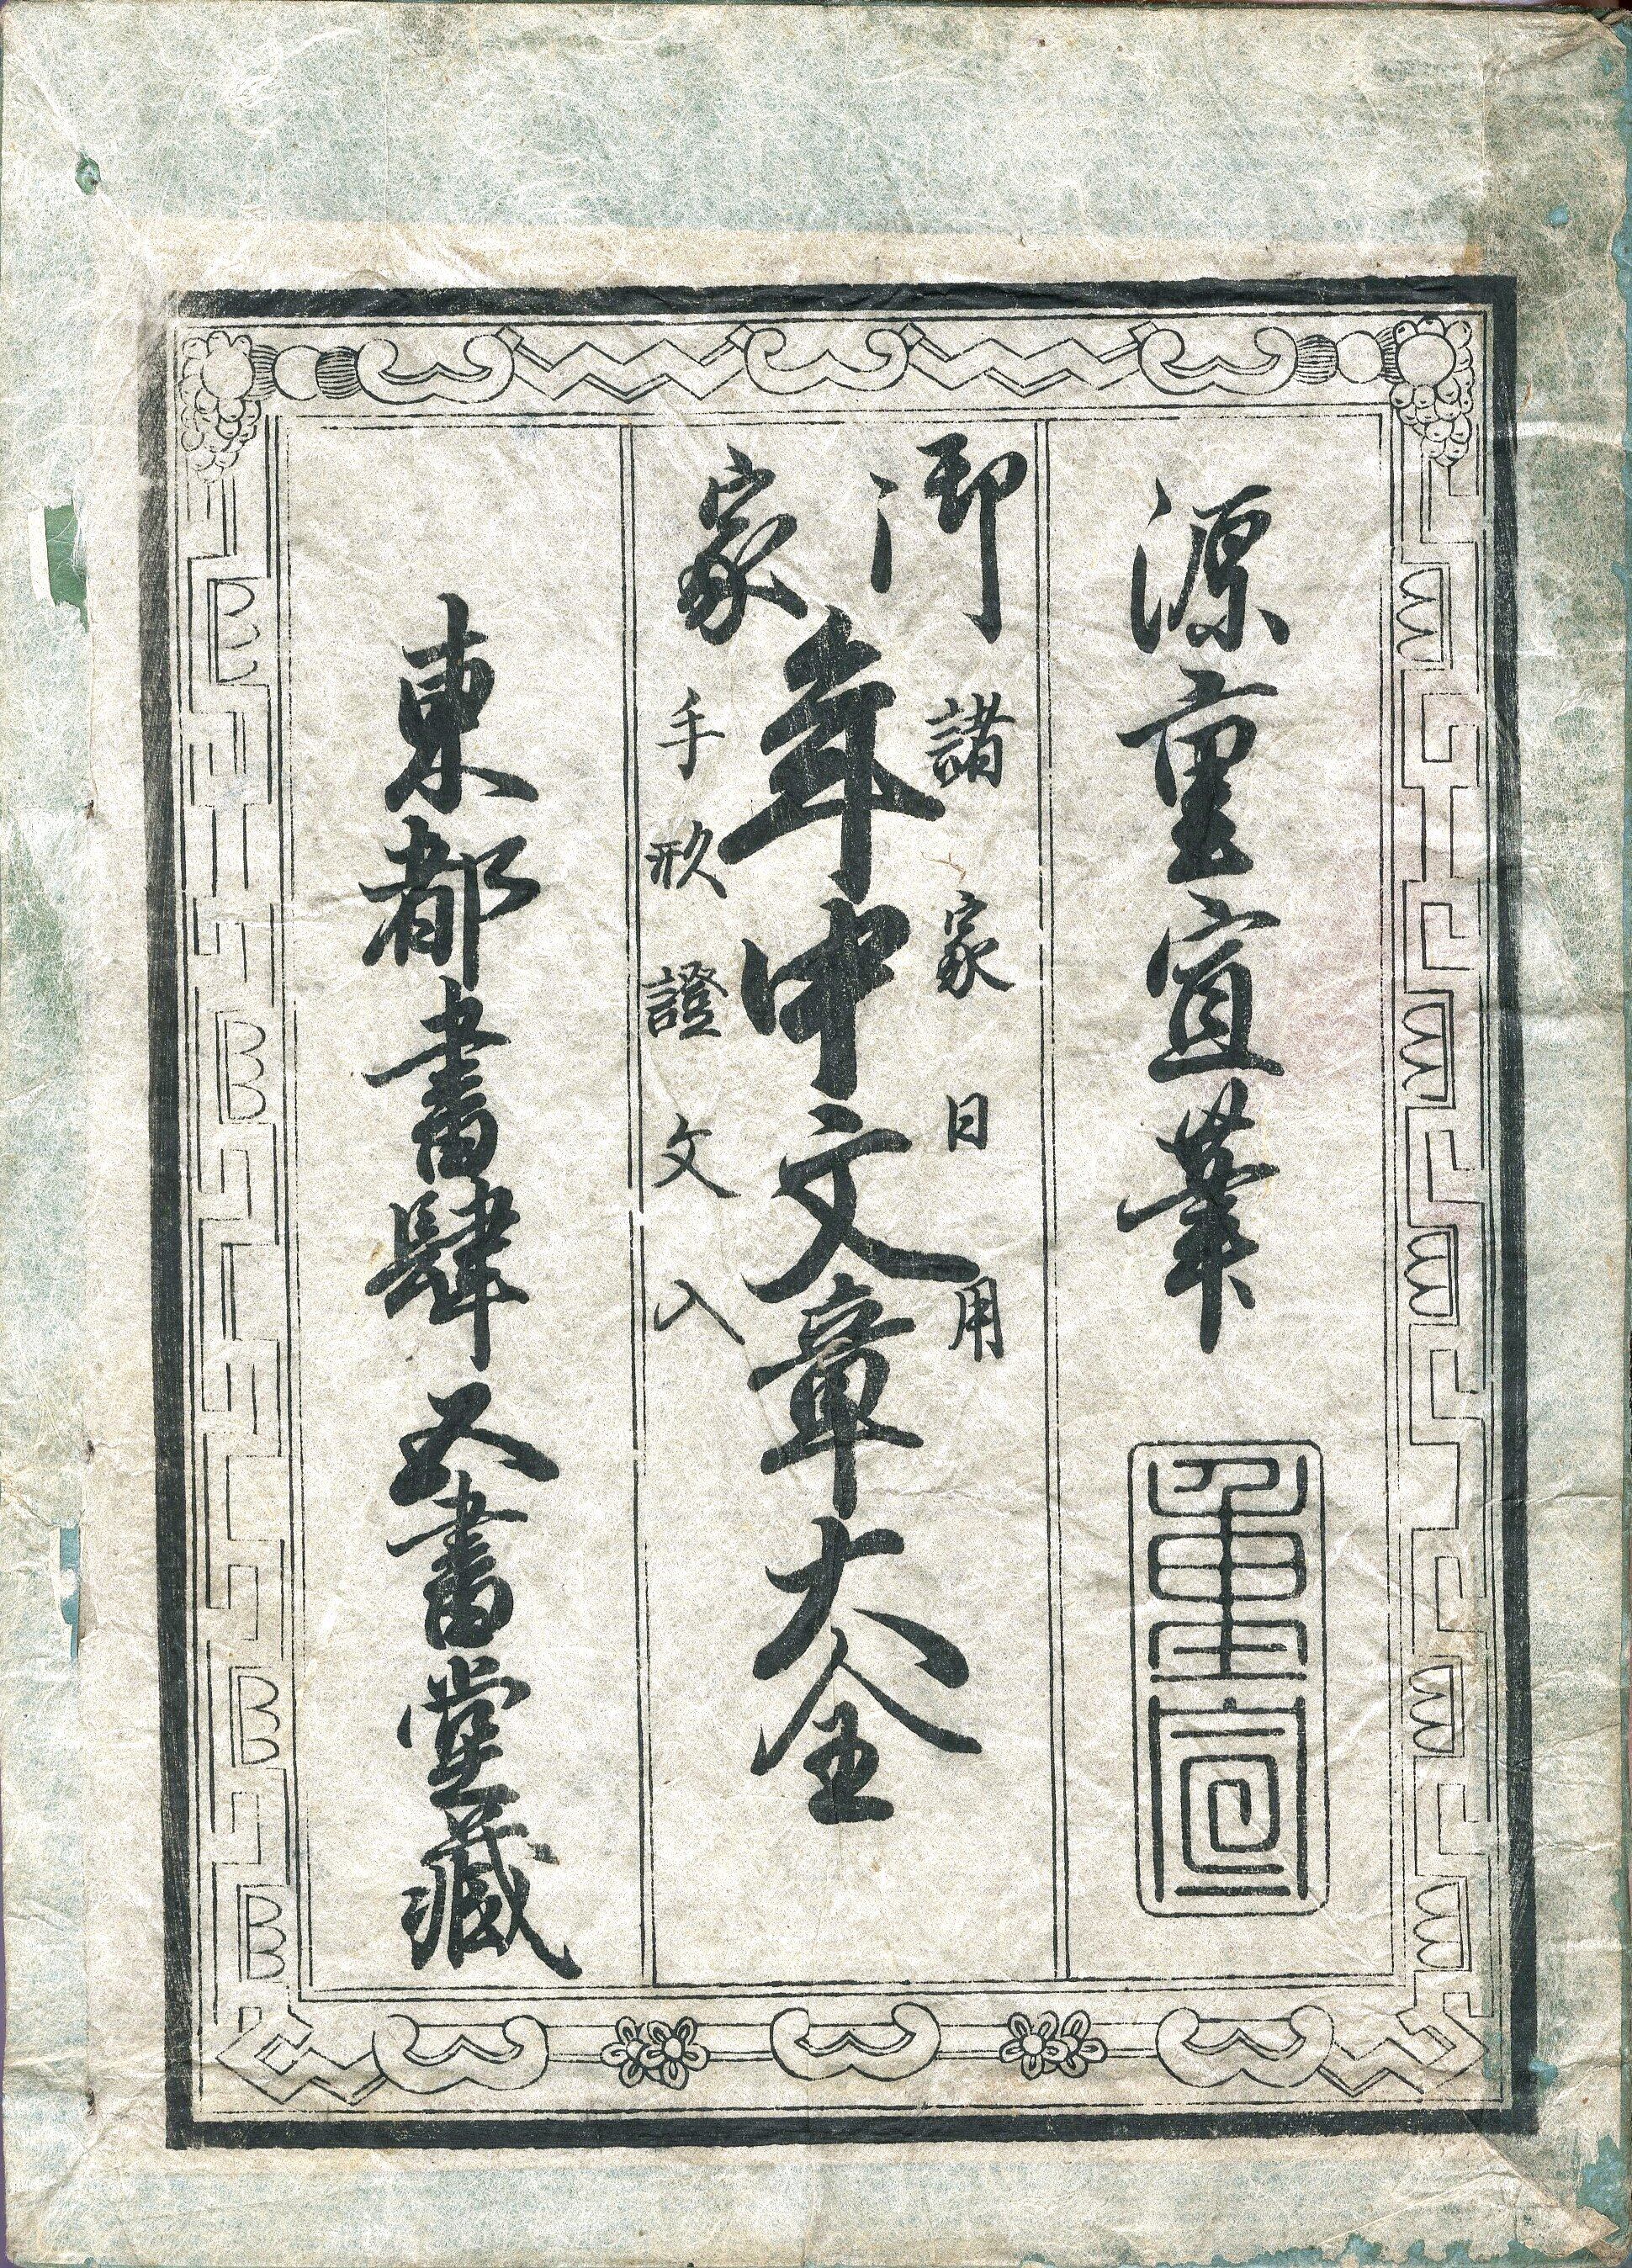 源重宣筆
重宣
御家
諸家日用
年中文章大全
手形證文入
東都書肆五書堂藏